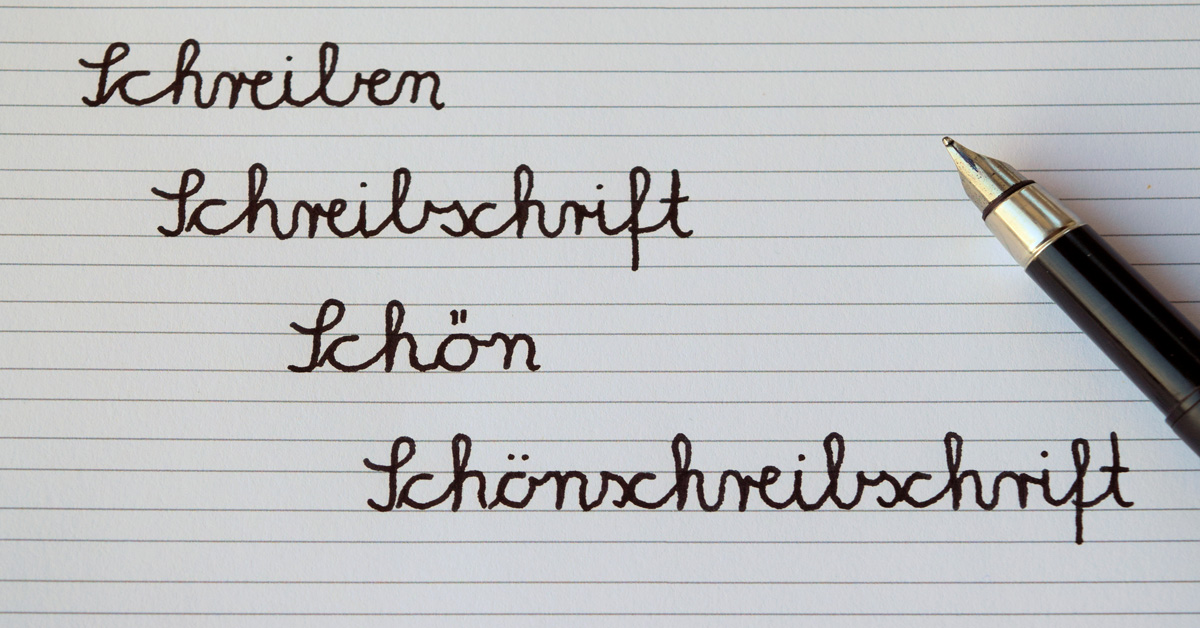 Schreiben
Schreibschrift
Schön
Schönschreibschrift